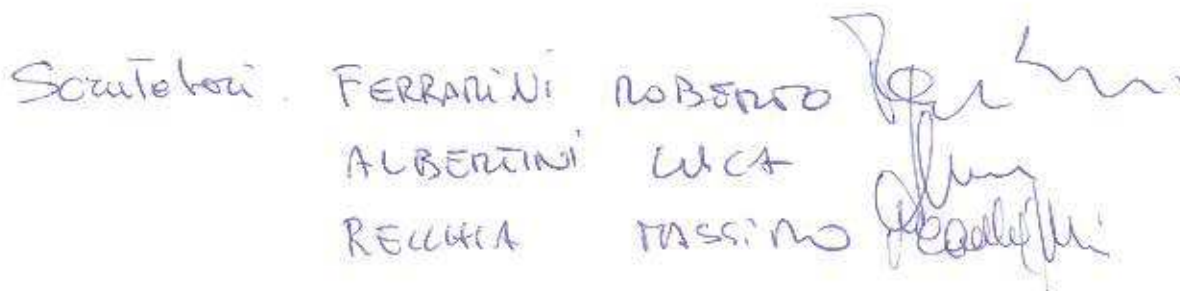 Scrutatori. FERRARINI ROBERTO
ALBERTINI LUCA
RECCHIA MASSIMO